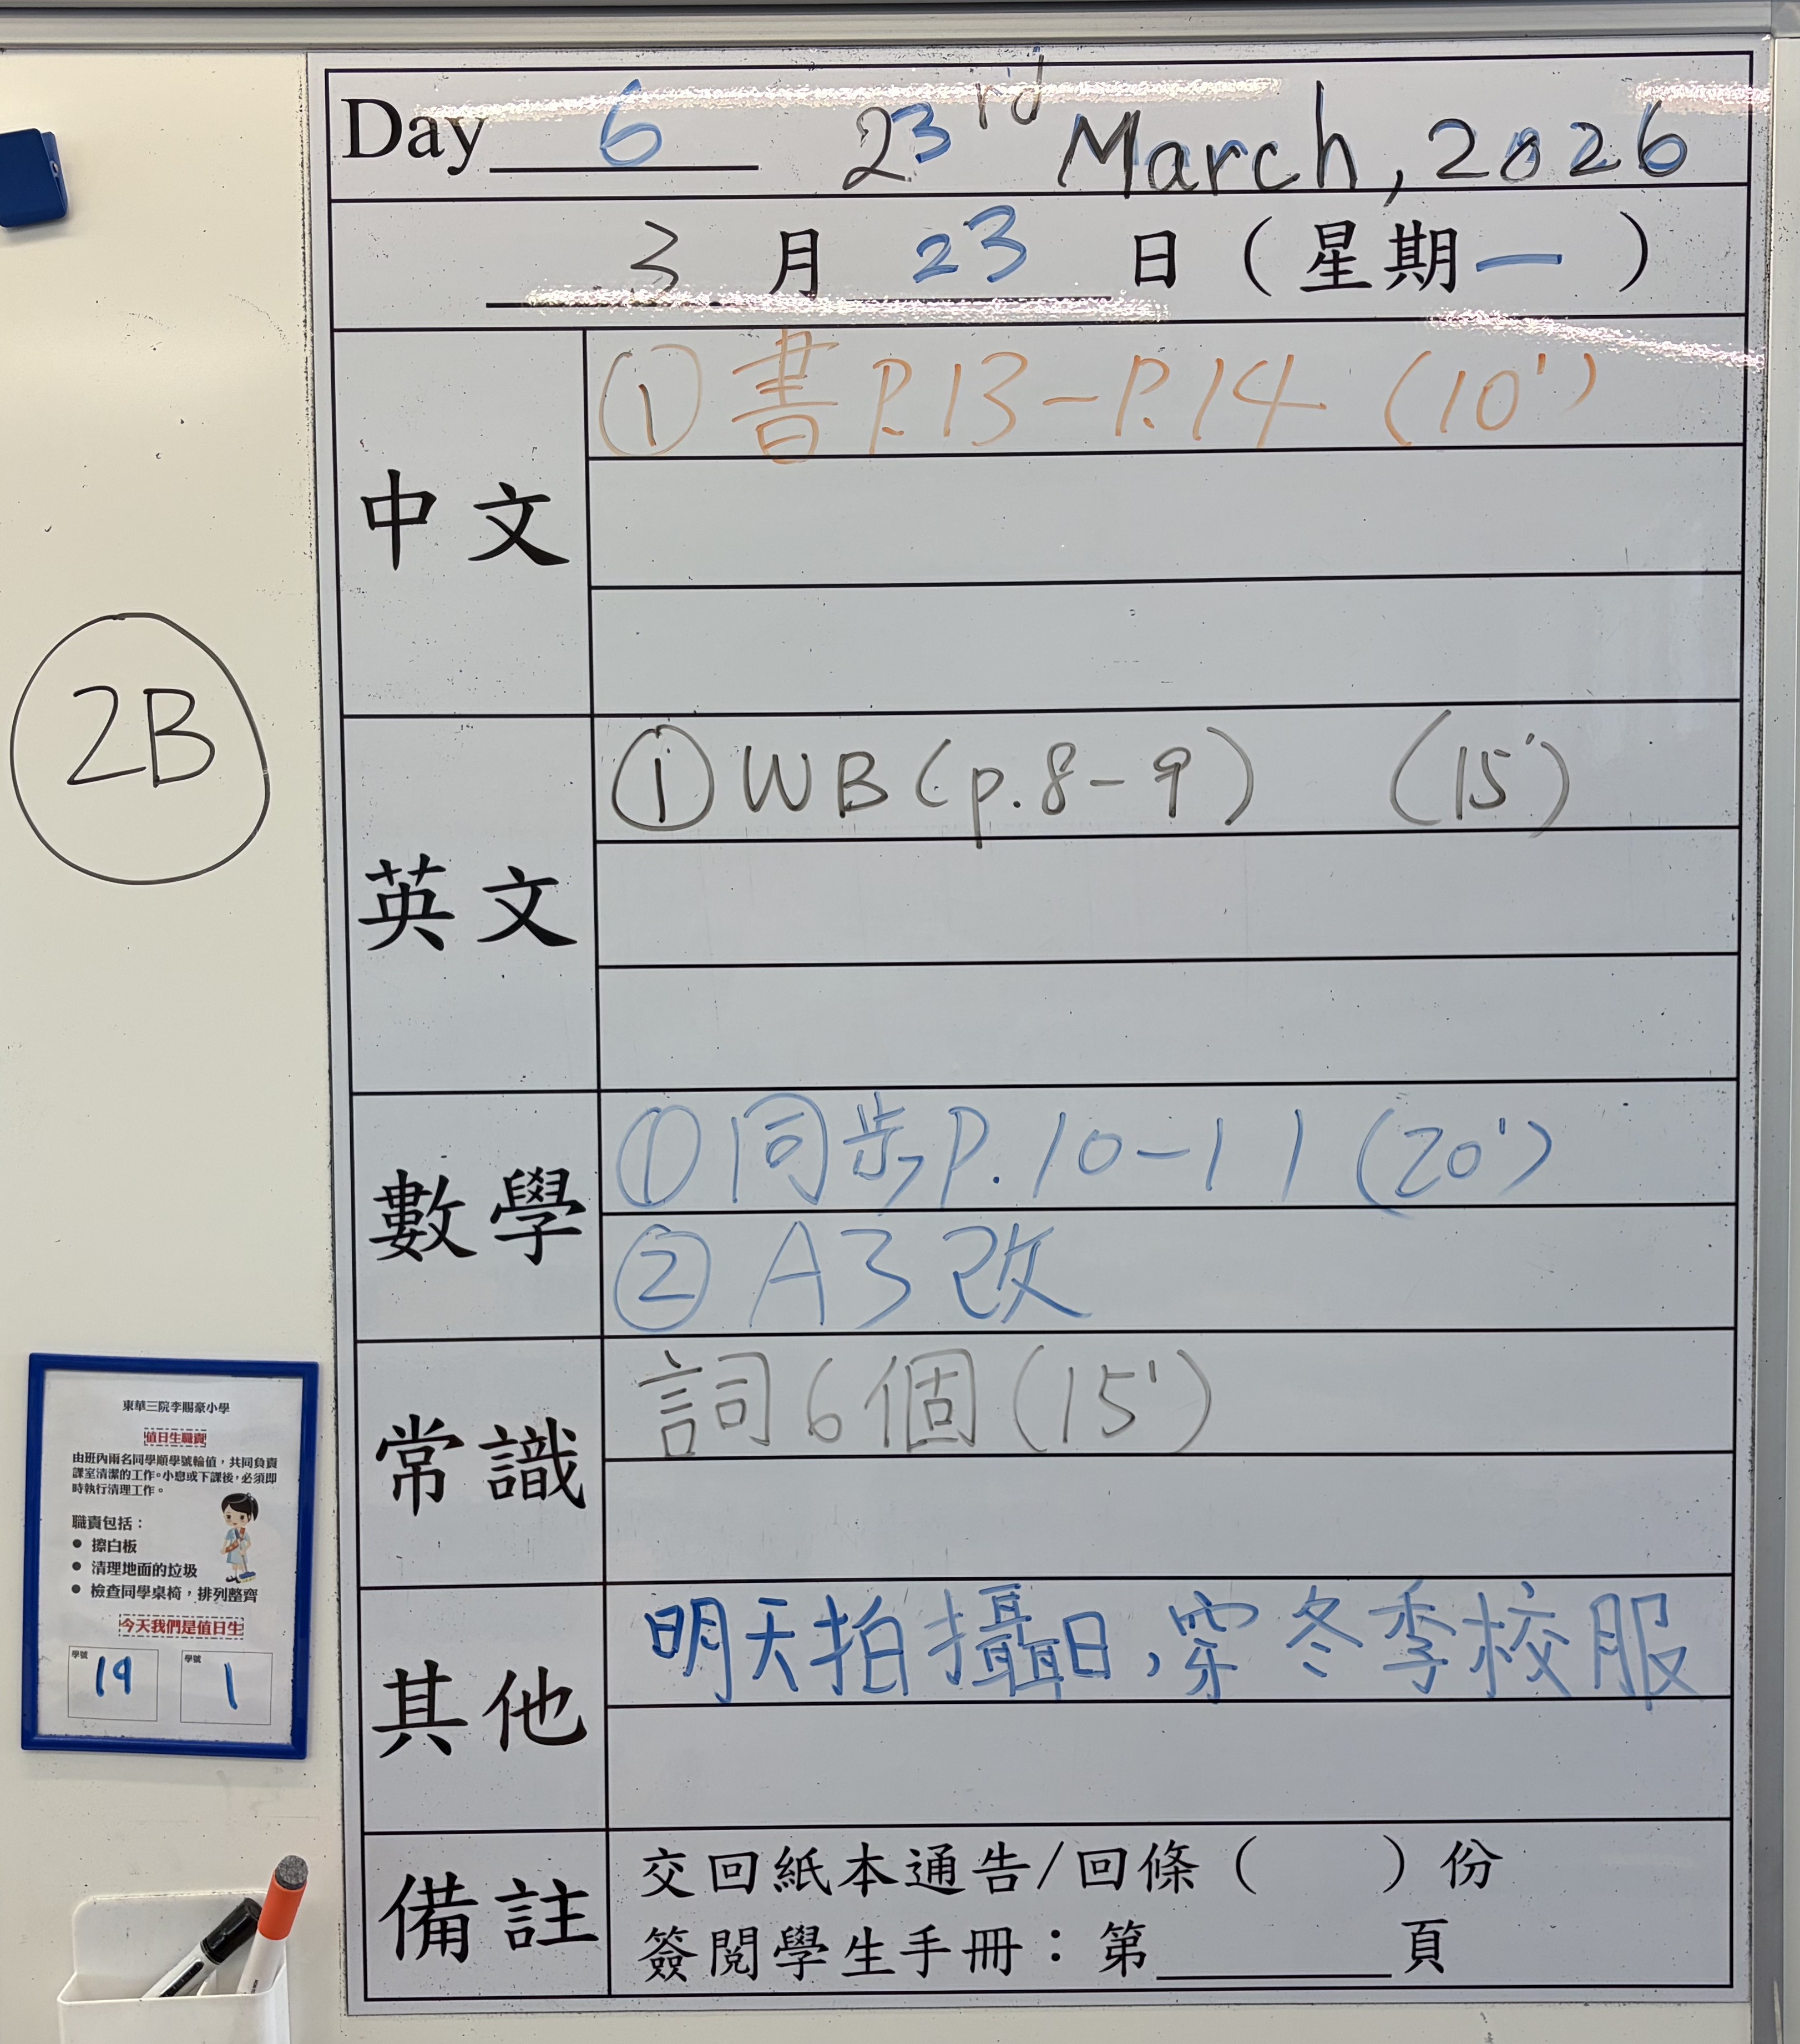 Day 6 23rd March, 2026
3 月 23 日 ( 星期一 )
中文
① 書 P.13-P.14 (10')
2B
英文
① WB (p.8-9) (15')
數學
① 同步 P.10-11 (20')
② A3 改
常識
詞6個 (15')
其他
明天拍攝日,穿冬季校服
備註
交回紙本通告/回條 ( ) 份
簽閱學生手冊:第______頁
東華三院李賜豪小學
值日生職責
由班內兩名同學順學號輪值,共同負責
課室清潔的工作。小息或下課後,必須即
時執行清理工作。
職責包括:
● 擦白板
● 清理地面的垃圾
● 檢查同學桌椅,排列整齊
今天我們是值日生
學號 19 學號 1